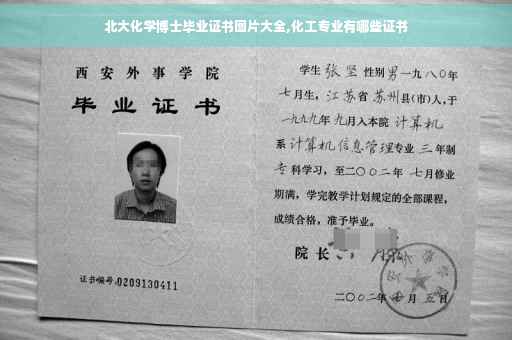 北大化学博士毕业证书图片大全,化工专业有哪些证书
西安外事学院
毕业证书
证书编号:0209130411
学生 张坚 性别 男 一九八〇年
七月生,江苏省 苏州县(市)人,于
一九九九年 九月入本院 计算机
系 计算机信息管理专业 三 年制
专科学习,至二〇〇二年 七月修业
期满,学完教学计划规定的全部课程,
成绩合格,准予毕业。
院长
二〇〇二年 月 五日